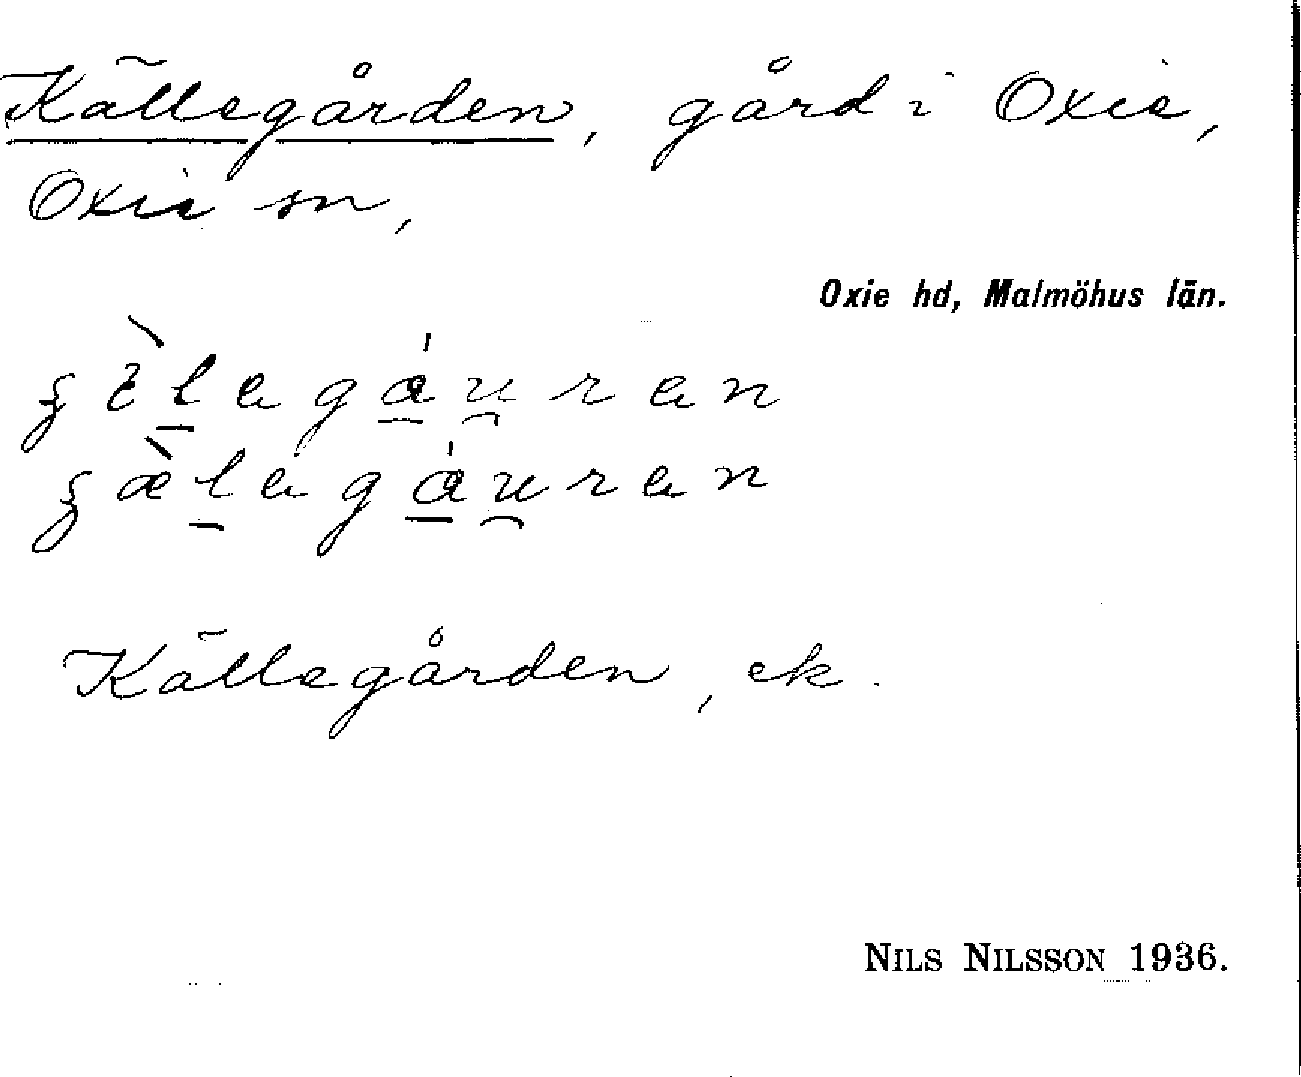 Källegården, gård i Oxie,
Oxie sn,
Oxie hd, Malmöhus län.
Källegården, ek.
NILS NILSSON 1936.